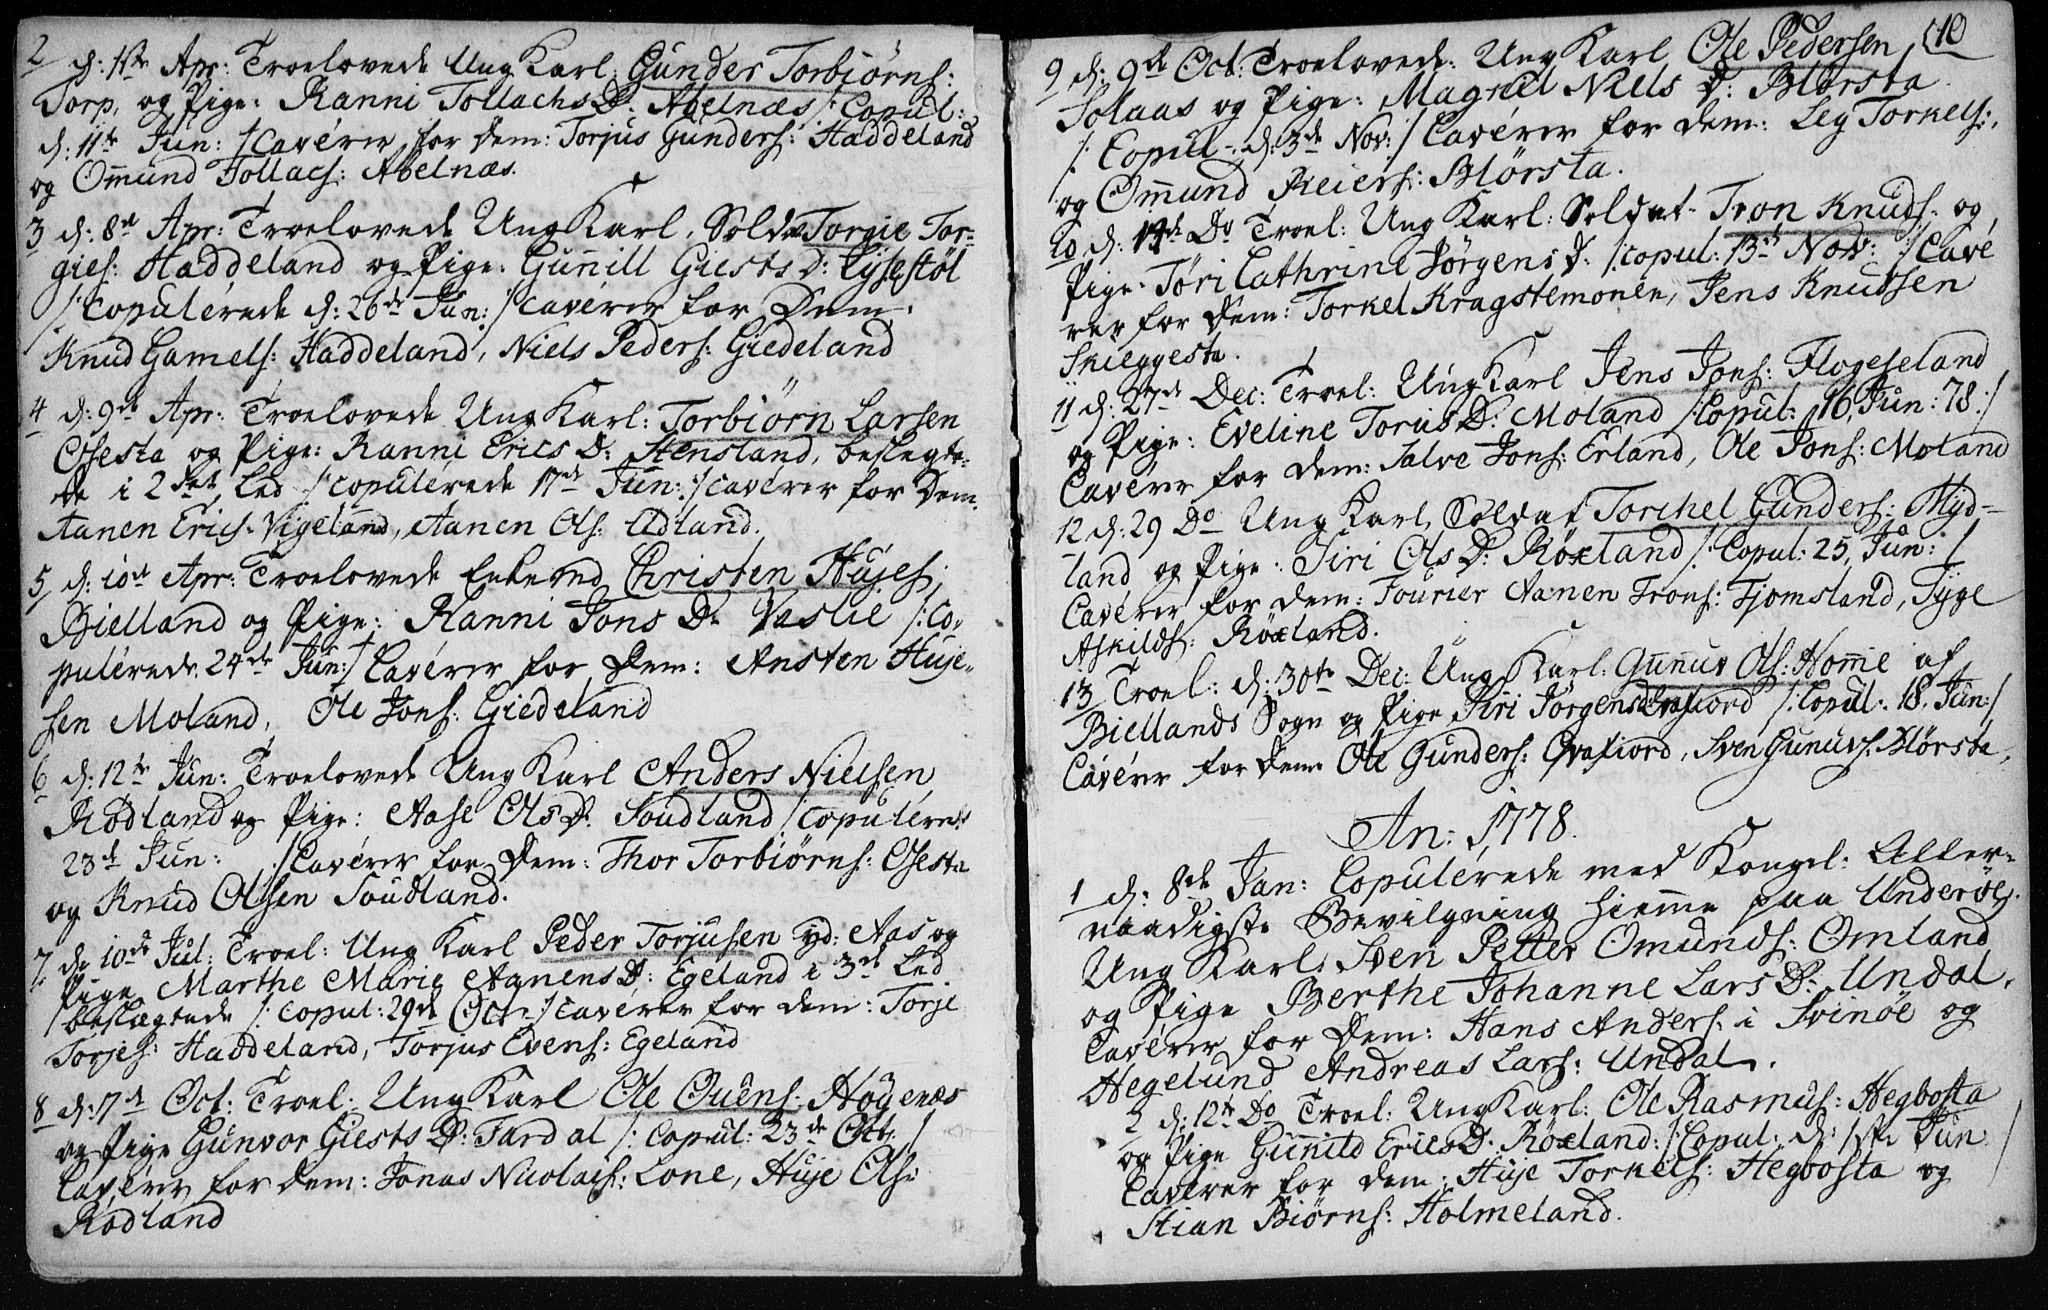 2 d: 1ste Apr: Troelovede Ung Karl: Gunder Torbiørns:
Torp, og Pige: Ranni TollachsD: Abelnæs /: Copul:
d: 11te Jun: :/ Cavérer for Dem: Torjus Gunders: Haddeland
og Om̅und Tollacs: Abelnæs.
3 d: 8de Apr: Troelovede Ung Karl, Sold: Torgie Tor=
gies: Haddeland og Pige: Gun̅ill GiestsD: Lysestøl
/: Copulérede d: 26de Jun: :/ Cavérer for Dem:
Knud Gamels: Haddeland, Niels Peders: Giedeland
4 d: 9de Apr: Troelovede Ung Karl: Torbiörn Larsen
Osesta og Pige: Ranni Erics D: Stensland, beslegte=
de i 2det Led /: copulérede 17de Jun: :/ Cavérer for Dem
Aanen Erics: Vigeland, Aanen Ols: Udland.
5 d: 10de Apr: Troelovede Enkemd Christen Hujes:
Bielland og Pige: Ranni Jons D: Vaslie /: Co=
pulérede 24de Jun: :/ Cavérer for Dem: Ansten Huje=
sen Moland, Ole Jons: Giedeland
6 d: 12te Jun: Troelovede Ung Karl Anders Nielsen
Rödland og Pige: Aase OlsD: Soudland /: Copulerede
23de Jun: :/ Cavérer for Dem: Thor Torbiørns: Osesta
og Knud Olsen Soudland.
7 d: 10de Jul: Troel: Ung Karl Peder Torjusen yd: Aas og
Pige Marthe Marie AanensD: Egeland i 3de Led
beslægtede /: Copul: 29de Oct: :/ Caverer for dem: Torje
Torjes: Haddeland, Torjus Evens: Egeland
8 d: 7de Oct: Troel: Ung Karl Ole Ouens: Höyenæs
og Pige Gunvor Giests D: Tardal /: Copul: 23de Oct: :/
Cavérer for dem: Jonas Nicolaes: Lone, Huje Ols:
Rödland
10
9 d: 9de Oct: Troelovede: Ung Karl Ole Pedersen
Solaas og Pige: Magrell Niels D: Blörsta
/: Copul: d: 3de Nov: :/ Cavérer for dem: Leg Torkels:,
og Om̅und Reiers: Blörsta.
10 d: 14de Do Troel: Ung Karl: Soldat Tron Knuds: og
Pige: Töri Cathrine Jörgens D: /: copul: 13de Nov: :/ Cavé
rer for Dem: Torkel Kragstemonen, Jens Knudsen
Skieggesta.
11 d: 27de Dec: Troel: Ung Karl Jens Jons: Flogeseland
og Pige: Eveline Torius D: Moland /: Copul: 16. Jun: 78 :/
Cavérer for dem: Salve Jons: Erland, Ole Jons: Moland
12 d: 29 Do Ung Karl, Soldat Torchel Gunders: Myd=
land og Pige: Siri Ols D: Röxland /: Copul: 25. Jun: :/
Cavérer for dem: Fourier Aanen Trons: Fjomsland, Tyge
Askilds: Röxland.
13 Troel: d: 30te Dec: Ung Karl: Gun̅uv Ols: Hom̅e af
Biellands Sogn og Pige Siri JörgensD: Qvafiord /: Copul: 18. Jun: :/
Cavérer for dem Ole Gunders: Qvafiord, Sven Gunuvs: Blörsta,
An: 1778.
1 d: 8de Jan: Copulérede med Kongel: Aller=
naadigste Bevilgning hiem̅e paa Underöe
Ung Karl: Sven Petter Omunds: Omland
og Pige Berthe Johanne Lars D: Undal,
Cavérer for Dem: Hans Anders: i Svinöe og
Hegelund Andreas Lars: Undal.
2 d: 12te Do Troel: Ung Karl: Ole Rasmus: Hegbosta
og Pige Gunild EricsD: Röxland: /: Copul: d: 1ste Jun: :/
Caverer for dem: Huje Torkels: Hegbosta og
Stian Biörns: Holmeland.